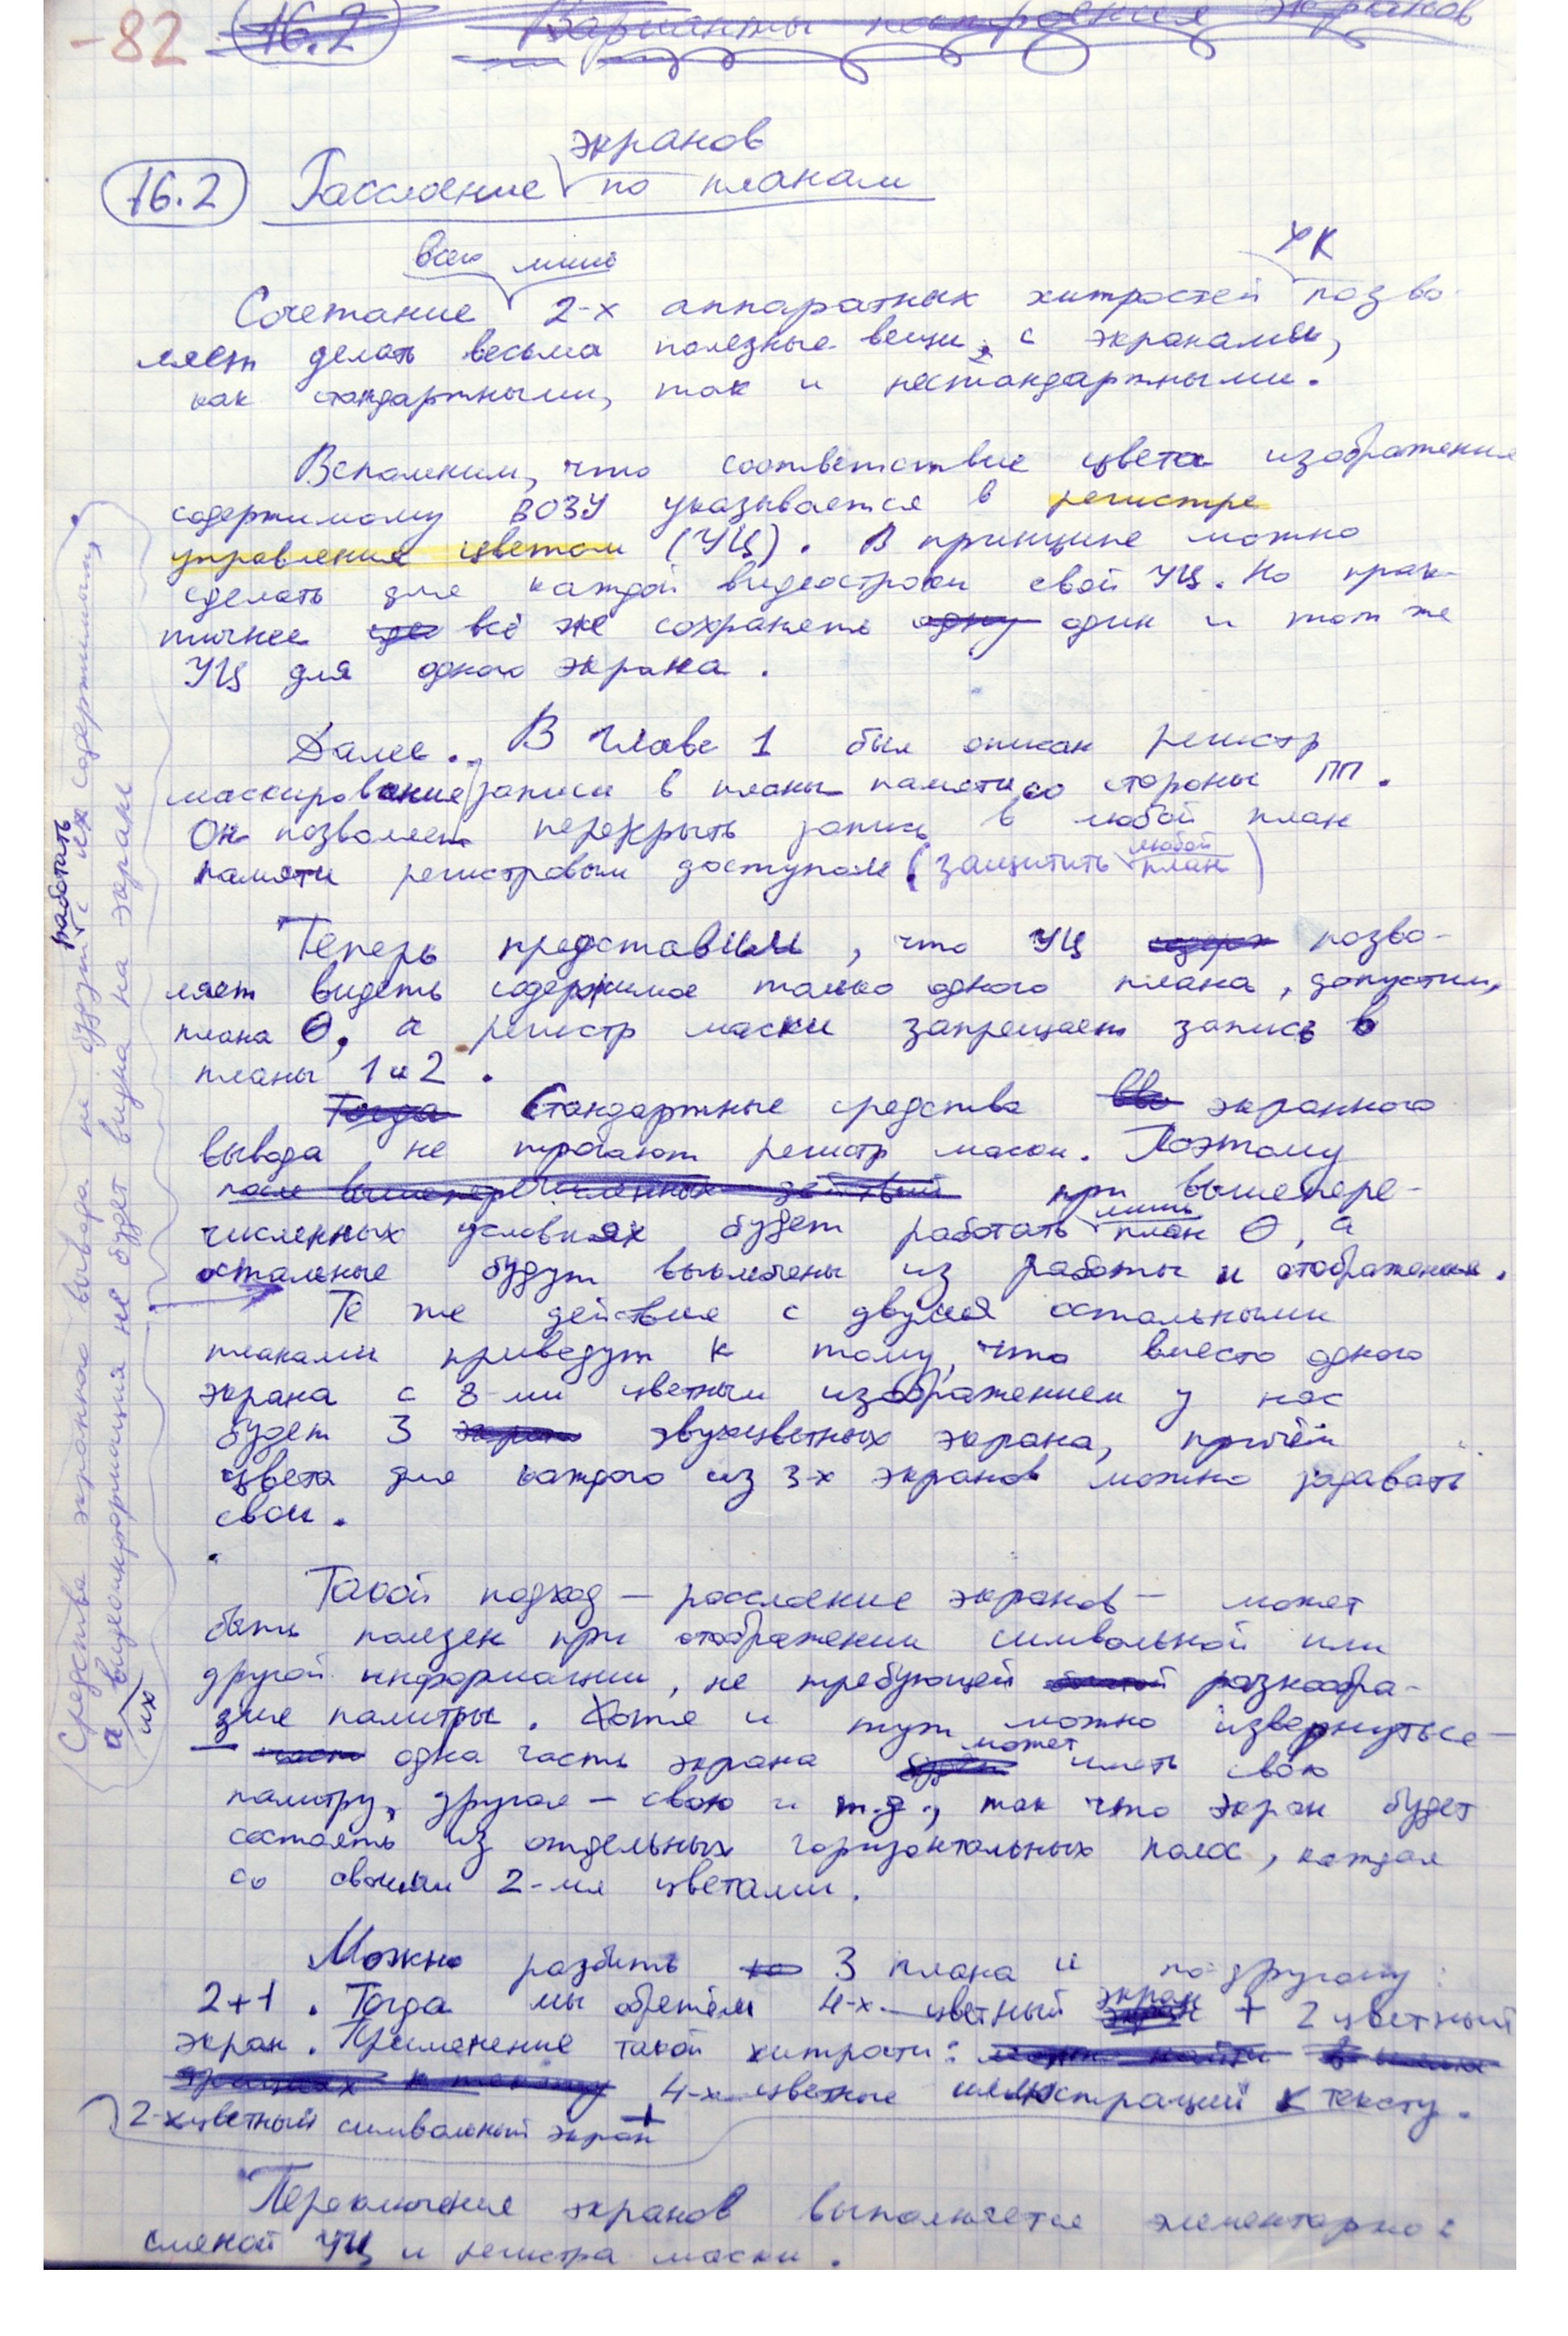 -82 16.2 Варианты построения экранов
экранов
16.2 Расслоение по планам
всего лишь УК
Сочетание 2-х аппаратных хитростей позво-
ляет делать весьма полезные вещи с экранами,
как стандартными, так и нестандартными.
Вспомним, что соответствие цвета изображения
содержимому ВОЗУ указывается в регистре
управления цветом (УЦ). В принципе можно
сделать для каждой видеостроки свой УЦ. Но прак-
тичнее всё же сохранять одну один и тот же
УЦ для одного экрана.
Далее. В Главе 1 был описан регистр
маскирования записи в планы памяти со стороны ПП.
Он позволяет перекрыть запись в любой план
памяти регистровым доступом (защитить любой план)
Теперь представим, что УЦ содерж позво-
ляет видеть содержимое только одного плана, допустим,
плана 0, а регистр маски запрещает запись в
планы 1 и 2.
Тогда Стандартные средства экранного
вывода не трогают регистр маски. Поэтому
после вышеперечисленных действий при вышепере-
лишь
численных условиях будет работать план 0, а
остальные будут выключены из работы и отображения.
Те же действия с двумя остальными
планами приведут к тому, что вместо одного
экрана с 8-ми цветным изображением у нас
будет 3 экрана двухцветных экрана, причём
цвета для каждого из 3-х экранов можно задавать
свои.
Такой подход — расслоение экранов — может
быть полезен при отображении символьной или
другой информации, не требующей разнообра-
зия палитры. Хотя и тут можно извернуться —
может
часть одна часть экрана будет иметь свою
палитру, другая — свою и т.д., так что экран будет
состоять из отдельных горизонтальных полос, каждая
со своими 2-мя цветами.
Можно разбить на 3 плана и по-другому:
экран
2+1. Тогда мы обретём 4-х цветный экран + 2 цветный
экран. Применение такой хитрости:
4-х цветные иллюстраций к тексту.
2-хцветный символьный экран +
Переключение экранов выполняется элементарно:
сменой УЦ и регистра маски.
Средства экранного вывода не будут работать с их содержимым,
а их видеоинформация не будет видна на экране